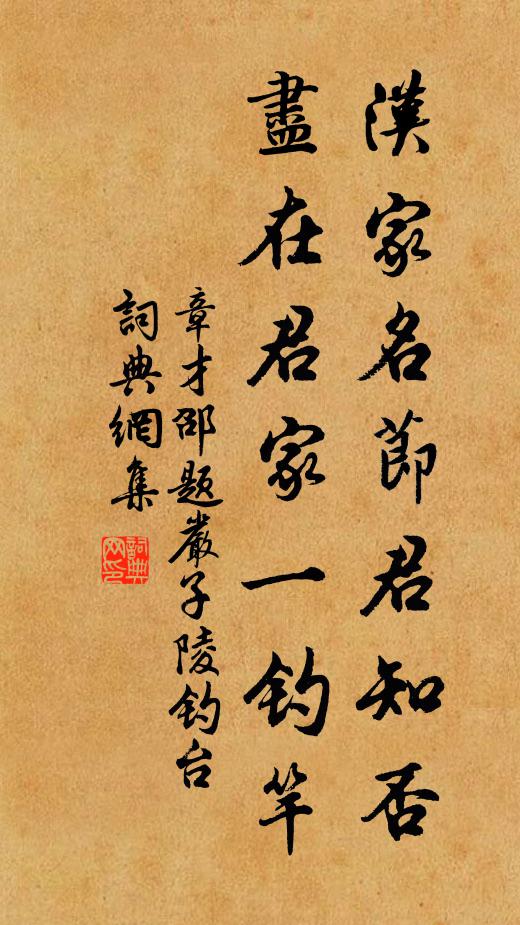 漢家名節君知否
盡在君家一釣竿
章才邵題嚴子陵釣台
詞典網集
詞典網印